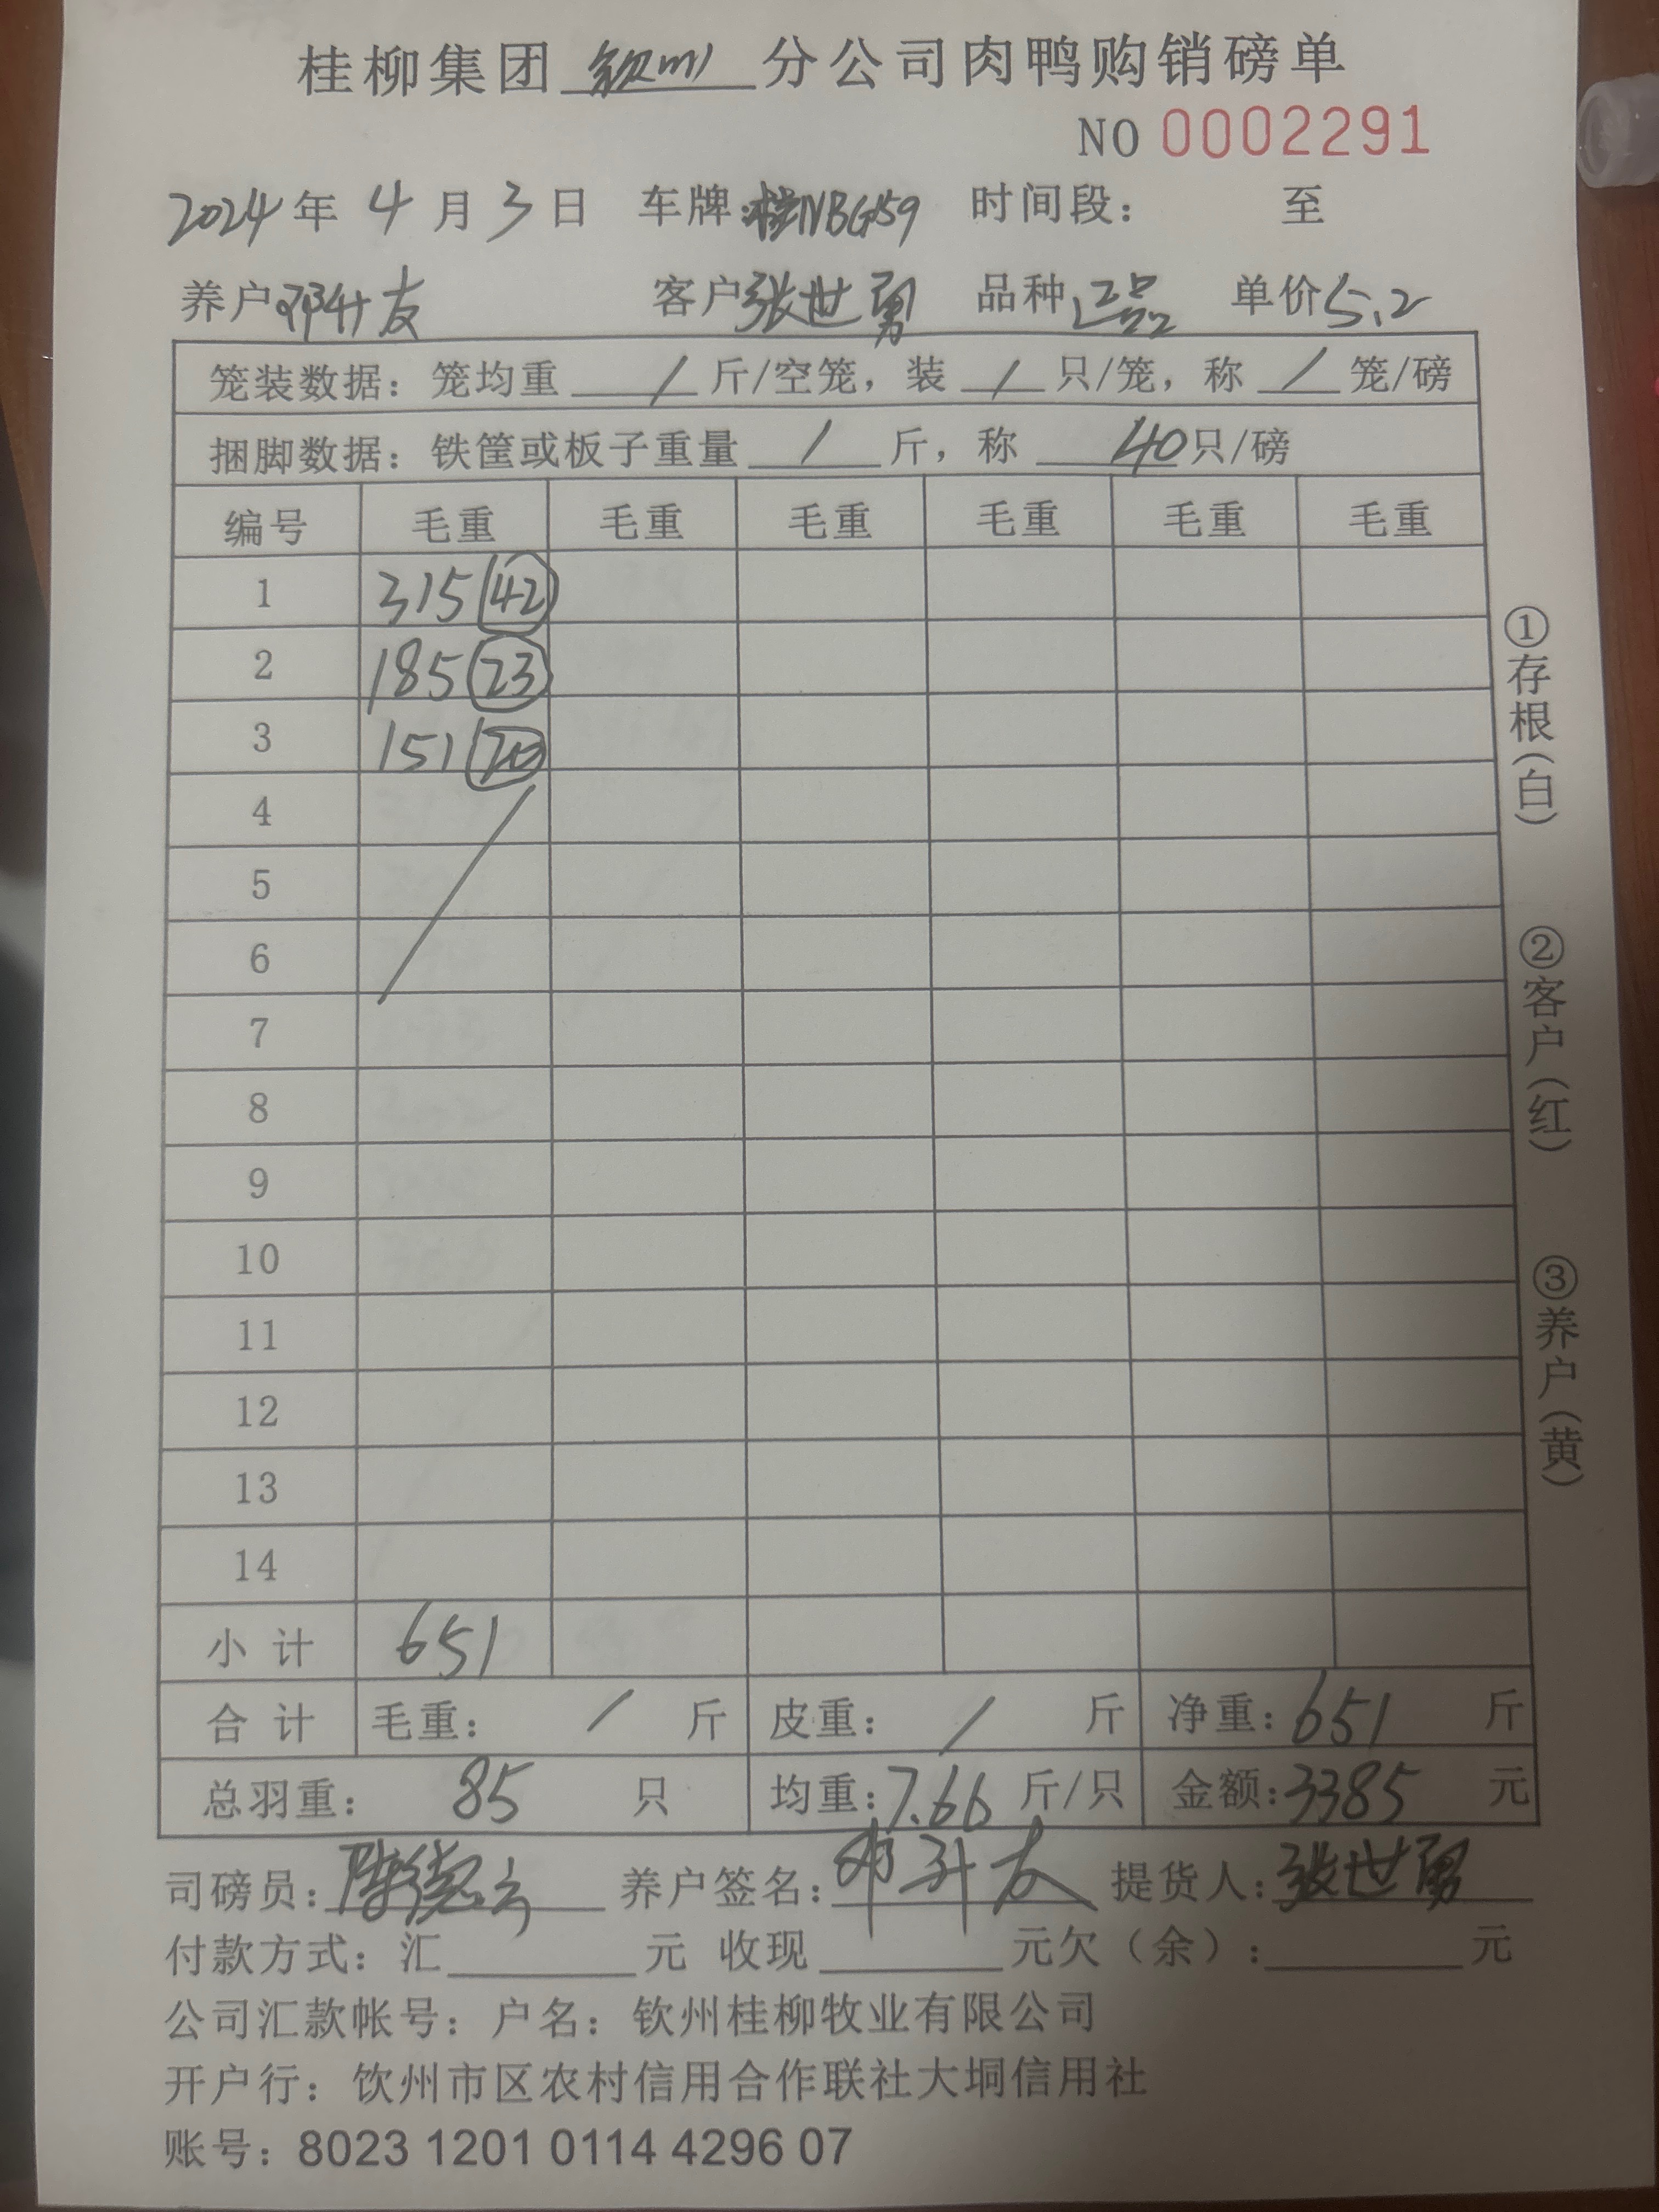 桂柳集团 钦州 分公司肉鸭购销磅单
NO 0002291
2024 年 4 月 3 日 车牌: 桂NBG159 时间段: 至
养户 邓升友 客户 张世勇 品种 正品 单价 5.2
笼装数据: 笼均重 / 斤/空笼, 装 / 只/笼, 称 / 笼/磅
捆脚数据: 铁筐或板子重量 / 斤, 称 40 只/磅
编号 毛重 毛重 毛重 毛重 毛重 毛重
1 315 42
2 185 23
3 151 20
4
5
6
7
8
9
10
11
12
13
14
小计 651
合计 毛重: / 斤 皮重: / 斤 净重: 651 斤
总羽重: 85 只 均重: 7.66 斤/只 金额: 3385 元
司磅员: 养户签名: 邓升友 提货人: 张世勇
付款方式: 汇 元 收现 元欠(余): 元
公司汇款帐号: 户名: 钦州桂柳牧业有限公司
开户行: 饮州市区农村信用合作联社大垌信用社
账号: 8023 1201 0114 4296 07
①存根(白)
②客户(红)
③养户(黄)